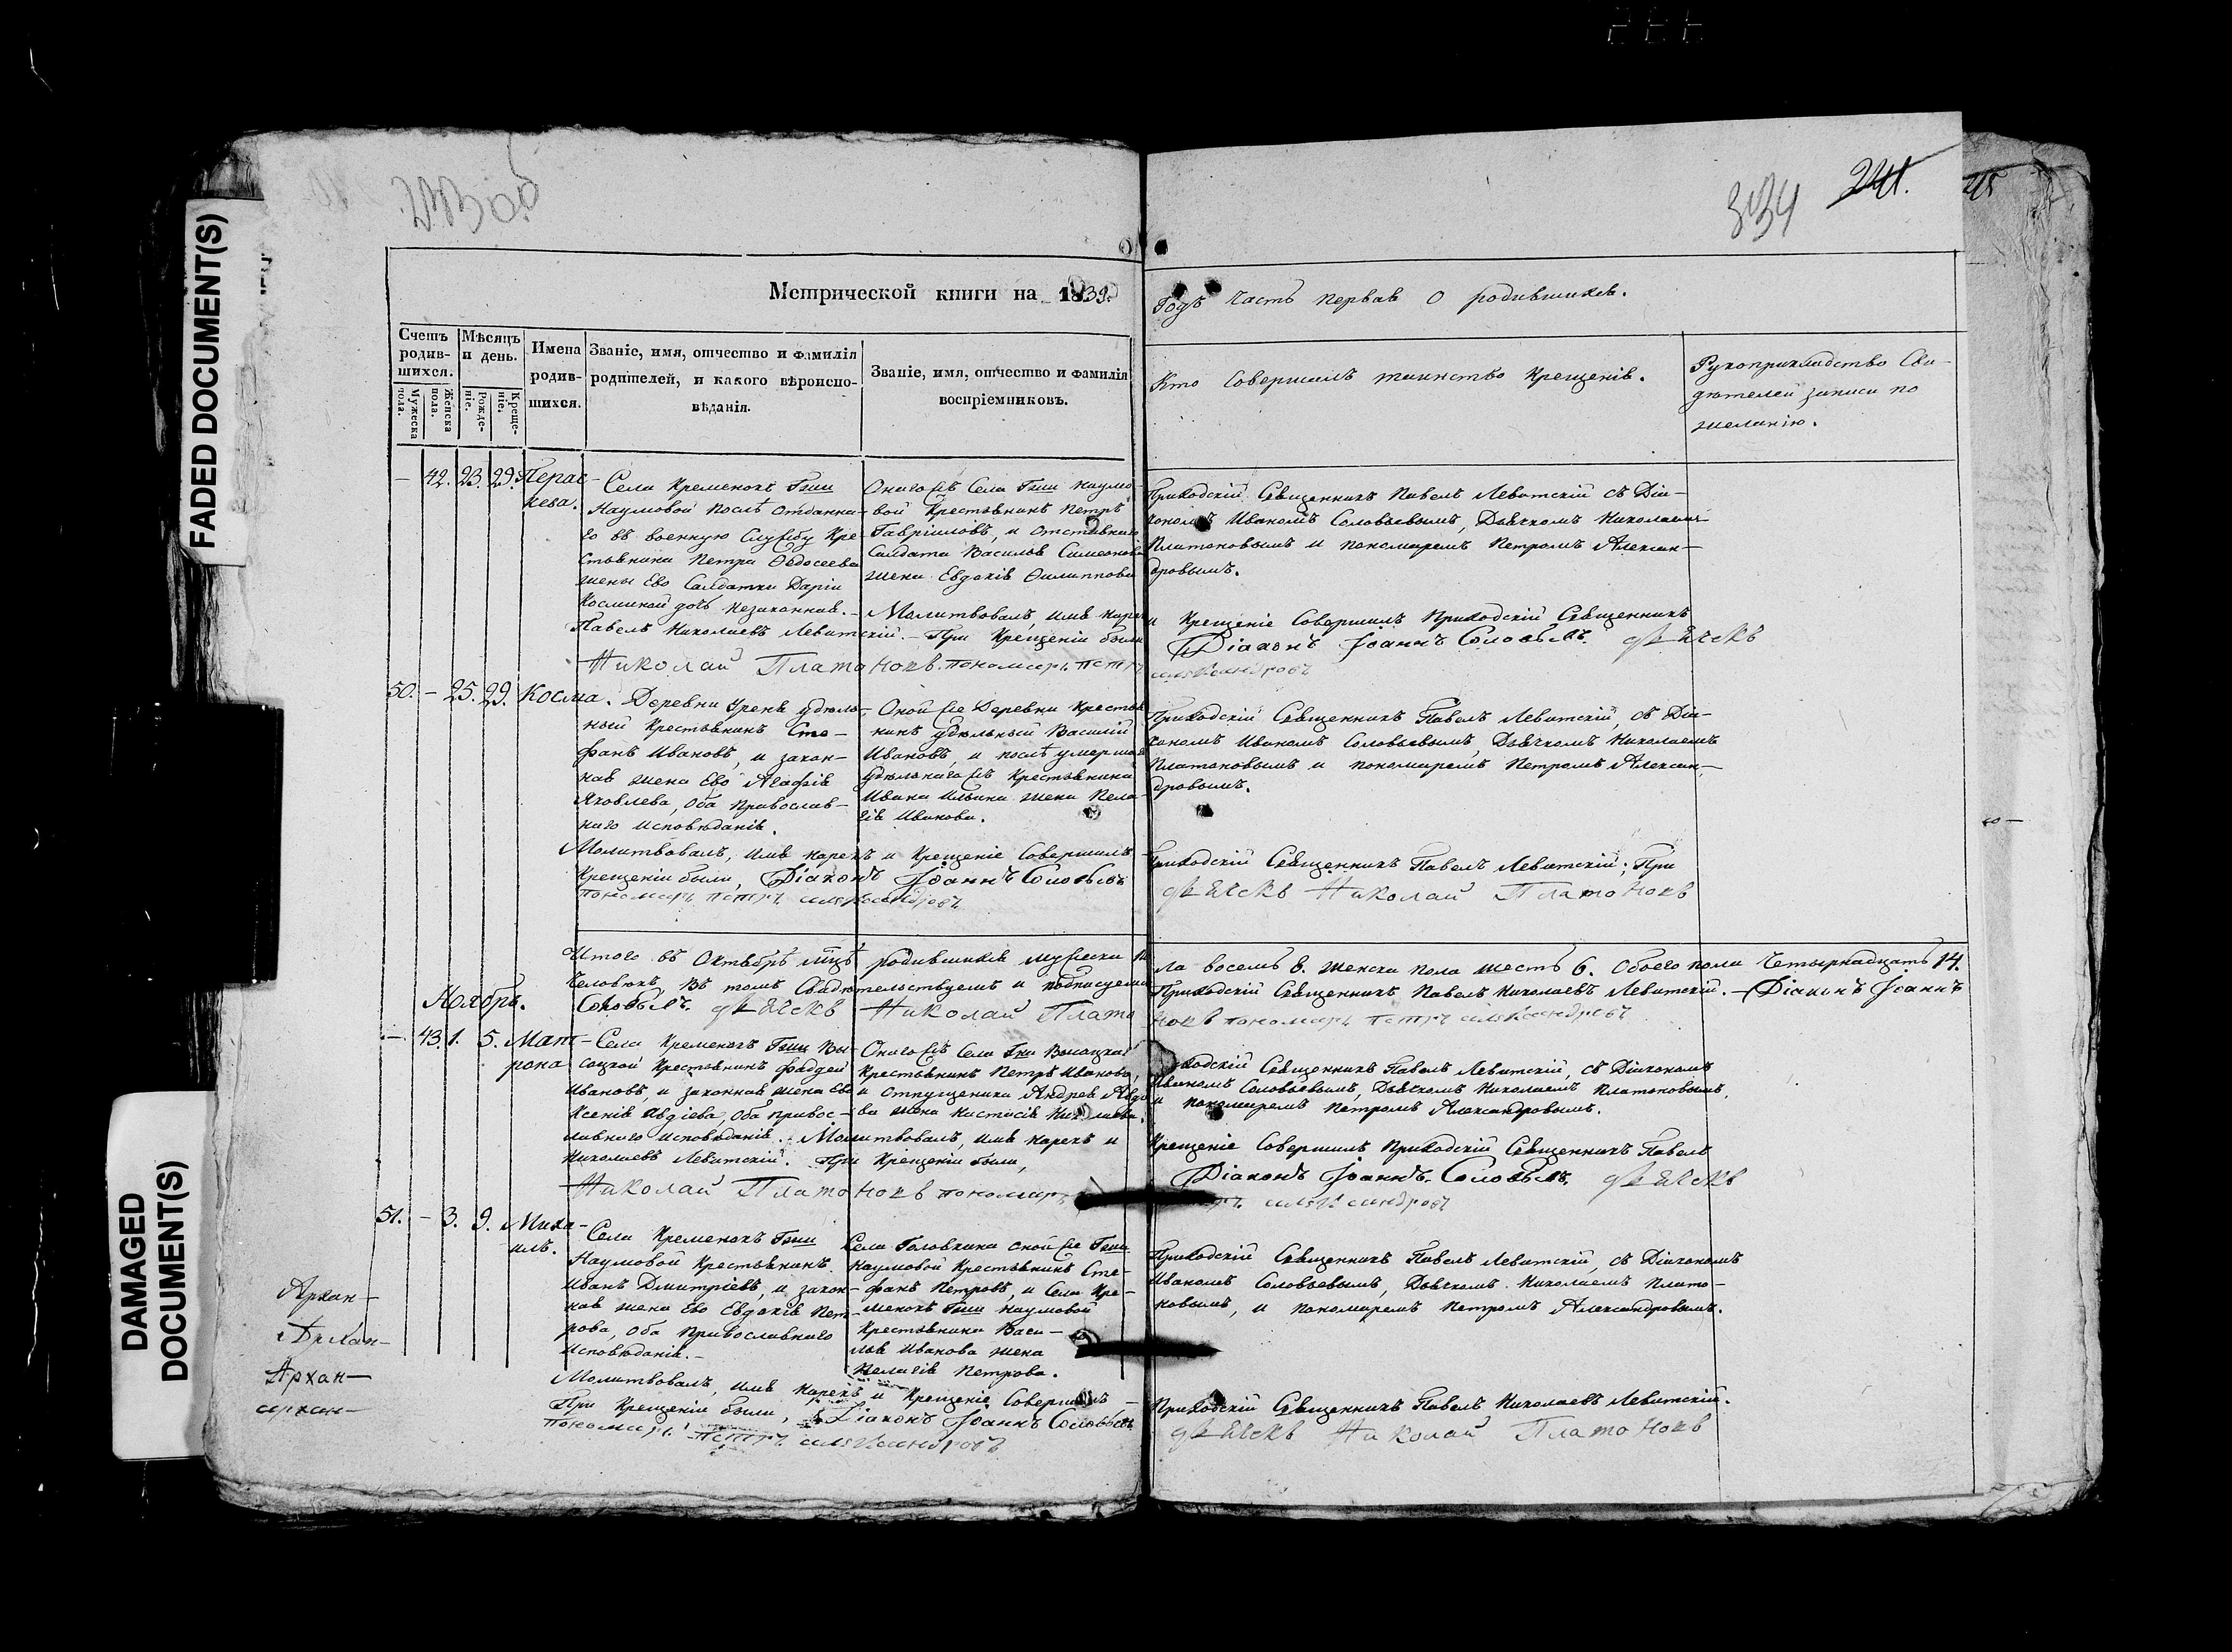 FADED DOCUMENT(S)
DAMAGED
DOCUMENT(S)
243 об
334 241.
Метрической книги на 1839.
Годъ часть первая о родившихся.
Счетъ родившихся.
Мужеска пола.
Женска пола.
Мѣсяцъ и день.
Рожденіе.
Крещеніе.
Имена родившихся.
Званіе, имя, отчество и фамилія
родителей, и какого вѣроиспо-
вѣданія.
Званіе, имя, отчество и фамилія
воспріемниковъ.
Кто совершалъ таинство крещенія.
Рукоприкладство сви-
дѣтелей записи по
желанію.
— 42. 23. 29. Парас-
кева.
Села Кременокъ Гжи
Наумовой послѣ отданна-
го въ военную службу кре-
стьянина Петра Ѳедосеева
жены его солдатки Даріи
Косминой дочь незаконная. —
Онаго же села Гжи Наумо-
вой крестьянинъ Петръ
Гавріиловъ, и отставнаго
солдата Василья Симеонова
жена Евдокія Филиппова
Приходскій Священникъ Павелъ Левитскій съ Діа-
кономъ Иваномъ Соловьевымъ, Дьячкомъ Николаемъ
Платоновымъ и пономаремъ Петромъ Алексан-
дровымъ.
Молитвовалъ, имя нарекъ и Крещеніе совершилъ Приходскій Священникъ
Павелъ Николаевъ Левитскій. — При крещеніи были Діаконъ Іоаннъ Соловьевъ. дьячекъ
Николай Платоновъ. пономарь петръ александровъ
50. — 25. 29. Косма.
Деревни Урена удѣль-
ный крестьянинъ Сте-
фанъ Ивановъ, и закон-
ная жена его Агафія
Яковлева, оба православ-
наго исповѣданія.
Оной же деревни крестья-
нинъ удѣльный Василій
Ивановъ, и послѣ умершаго
удѣльнаго жъ крестьянина
Ивана Ильина жена Пела-
гія Иванова.
Приходскій Священникъ Павелъ Левитскій, съ Діа-
кономъ Иваномъ Соловьевымъ, Дьячкомъ Николаемъ
Платоновымъ и пономаремъ Петромъ Алексан-
дровымъ.
Молитвовалъ, имя нарекъ и Крещеніе совершилъ Приходскій Священникъ Павелъ Левитскій; При
крещеніи были, Діаконъ Іоаннъ Соловьевъ дьячекъ Николай Платоновъ
пономарь петръ александровъ
Итого въ октябрѣ мцѣ родившихся мужеска пола восемь 8. женска пола шесть 6. обоего пола четырнадцать 14.
человѣкъ, въ томъ свидѣтельствуемъ и подписуемся Приходскій Священникъ Павелъ Николаевъ Левитскій. — Діаконъ Іоаннъ
Соловьевъ. дьячекъ Николай Платоновъ пономарь петръ александровъ
Ноябрь.
— 43. 1. 5. Мат-
рона
Села Кременокъ Гжи Вы-
соцкой крестьянинъ Фаддей
Ивановъ, и законная жена его
Ксенія Авдіева, оба правос-
лавнаго исповѣданія.
Онаго жъ села Гжи Высоцкой
крестьянинъ Петръ Ивановъ,
и отпущеника Андрея
жена Настасія
Приходскій Священникъ Павелъ Левитскій, съ Діакономъ
Иваномъ Соловьевымъ, Дьячкомъ Николаемъ Платоновымъ,
и пономаремъ Петромъ Александровымъ.
Молитвовалъ, имя нарекъ и Крещеніе совершилъ Приходскій Священникъ Павелъ
Николаевъ Левитскій. При крещеніи были, Діаконъ Іоаннъ Соловьевъ. дьячекъ
Николай Платоновъ пономарь петръ александровъ
51. — 3. 9. Миха-
илъ.
Села Кременокъ Гжи
Наумовой крестьянинъ
Иванъ Дмитріевъ, и закон-
ная жена его Евдокія Пет-
рова, оба православнаго
исповѣданія. —
Села Головкина оной же Гжи
Наумовой крестьянинъ Сте-
фанъ Петровъ, и села Кре-
менокъ Гжи Наумовой
крестьянина Васи-
лья Иванова жена
Пелагія Петрова.
Приходскій Священникъ Павелъ Левитскій, съ Діакономъ
Иваномъ Соловьевымъ, Дьячкомъ Николаемъ Плато-
новымъ, и пономаремъ Петромъ Александровымъ.
Молитвовалъ, имя нарекъ и Крещеніе совершилъ — Приходскій Священникъ Павелъ Николаевъ Левитскій.
При крещеніи были, Діаконъ Іоаннъ Соловьевъ дьячекъ Николай Платоновъ
пономарь петръ александровъ
Архан—
Архан—
Архан—
архан—